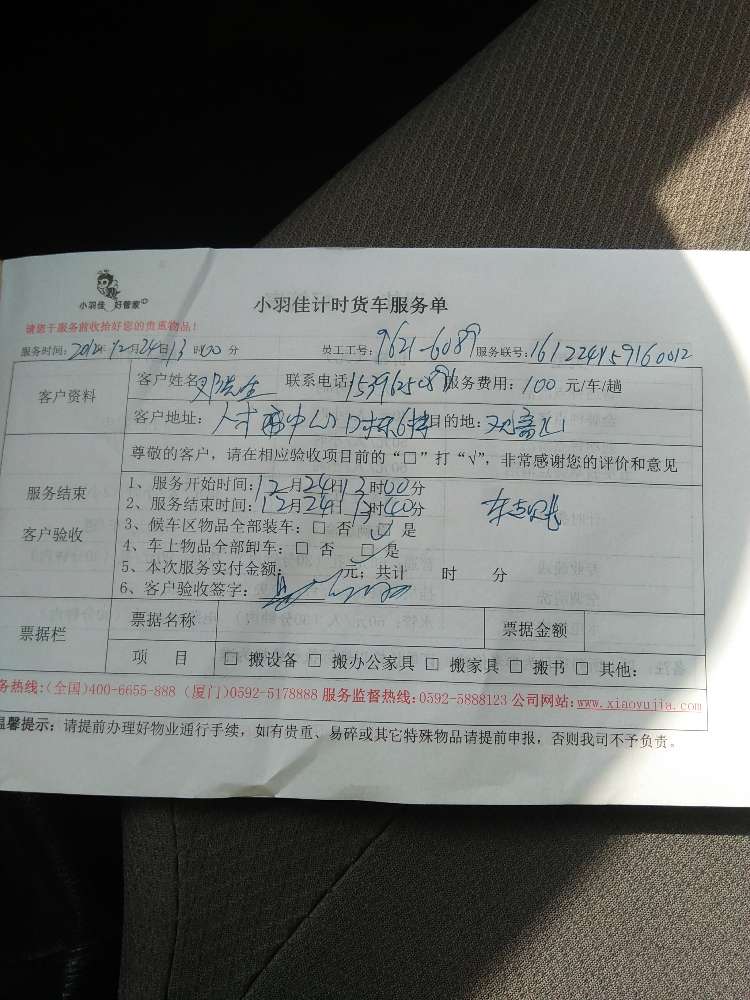 小羽佳 好管家
小羽佳计时货车服务单
请您于服务前收拾好您的贵重物品!
服务时间: 12月24日13时00分 员工工号: 服务联号:
客户资料
客户姓名 邓先生 联系电话 服务费用: 100 元/车/趟
客户地址: 目的地: 观音山
尊敬的客户，请在相应验收项目前的“□”打“√”，非常感谢您的评价和意见
服务结束
客户验收
1、服务开始时间: 12月24日13时00分
2、服务结束时间: 12月24日13时40分
3、候车区物品全部装车: □ 否 □ 是
4、车上物品全部卸车: □ 否 □ 是
5、本次服务实付金额: 元; 共计 时 分
6、客户验收签字:
票据栏
票据名称 票据金额
项 目 □ 搬设备 □ 搬办公家具 □ 搬家具 □ 搬书 □ 其他:
务热线:(全国)400-6655-888 (厦门)0592-5178888 服务监督热线:0592-5888123 公司网站:www.xiaoyujia.com
温馨提示: 请提前办理好物业通行手续，如有贵重、易碎或其它特殊物品请提前申报，否则我司不予负责。